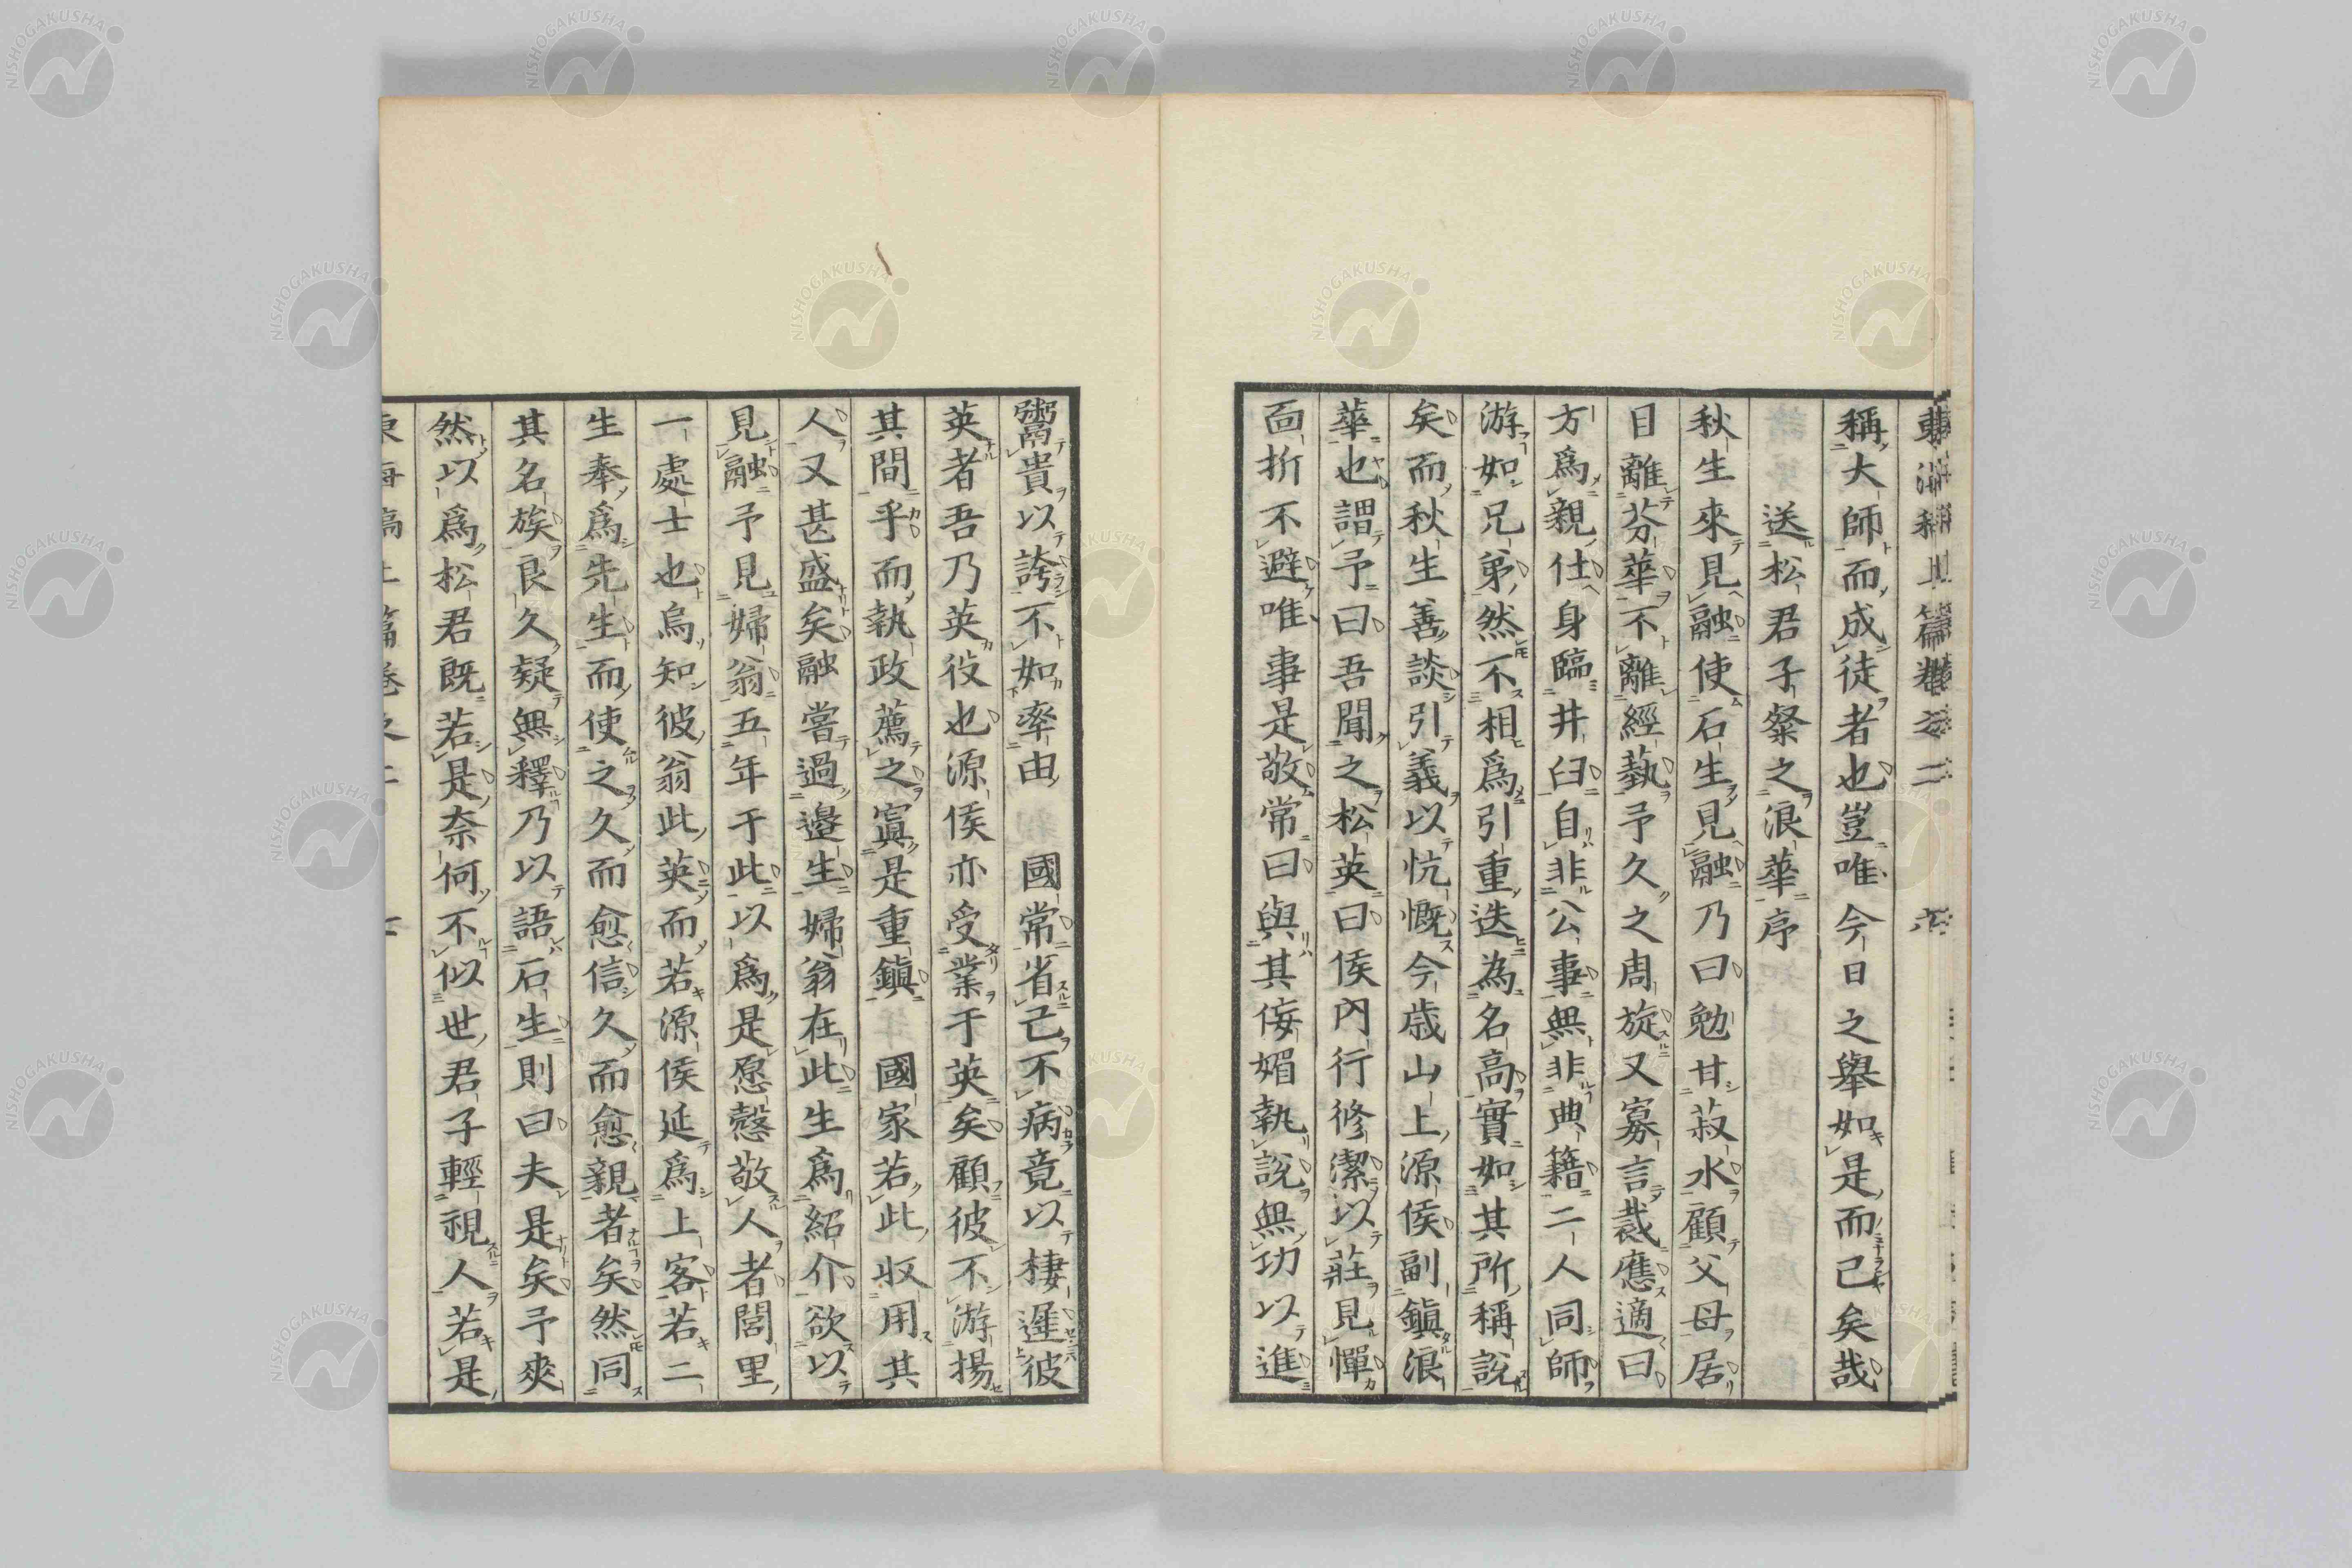 東海稿上篇卷之二 六
稱大師而成徒者也豈唯今日之舉如是而已矣哉
送松君子粲之浪華序
秋生來見融使石生見融乃曰勉甘菽水顧父母居
目離芬華不離經藝予久之周旋又寡言裁應適曰
方爲親仕身臨井臼自非公事無非典籍二人同師
游如兄弟然不相爲引重迭為名高實如其所稱說
矣而秋生善談引義以忼慨今歲山上源侯副鎮浪
華也謂予曰吾聞之松英曰侯內行修潔以莊見憚
面折不避唯事是敬常曰與其侫媚執說無功以進
鬻貴以誇不如率由 國常省己不病竟以棲遲彼
英者吾乃英役也源侯亦受業于英矣顧彼不游揚
其間乎而執政薦之寘是重鎮 國家若此収用其
人又甚盛矣融嘗過邉生婦翁在此生爲紹介欲以
見融予見婦翁五年于此以爲是愿慤敬人者閭里
一處士也烏知彼翁此英而若源侯延爲上客若二
生奉爲先生而使之久而愈信久而愈親者矣然同
其名族良久疑無釋乃以語石生則曰夫是矣予爽
然以爲松君既若是奈何不似世君子輕視人若是
東海稿上篇卷之二 七
NISHOGAKUSHA